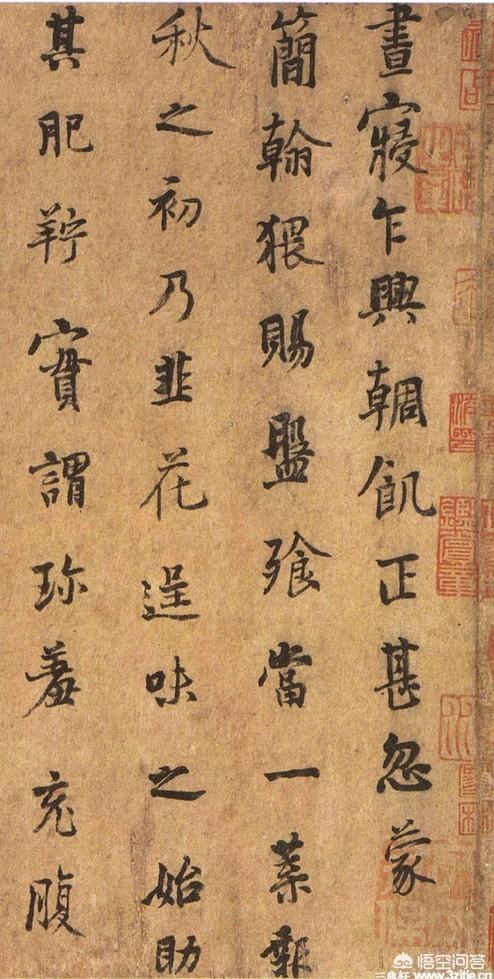 晝寢乍興輖飢正甚忽蒙
簡翰猥賜盤飧當一葉報
秋之初乃韭花逞味之始助
其肥羜實謂珍羞充腹
悟空问答
www.3zitie.cn